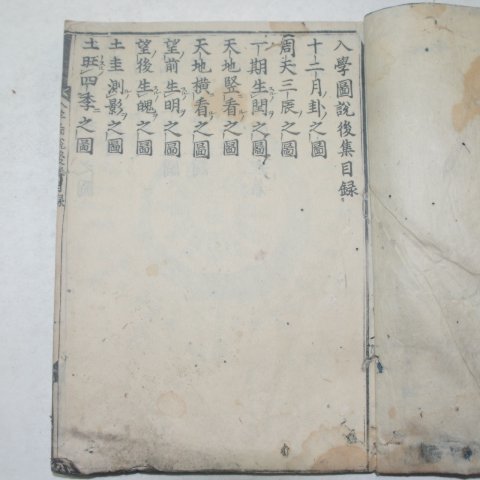 入學圖說後集目録
十二月卦之圖
周天三辰之圖
一期生閏之圖
天地竪看之圖
天地橫看之圖
望前生明之圖
望後生魄之圖
土圭測影之圖
土旺四季之圖